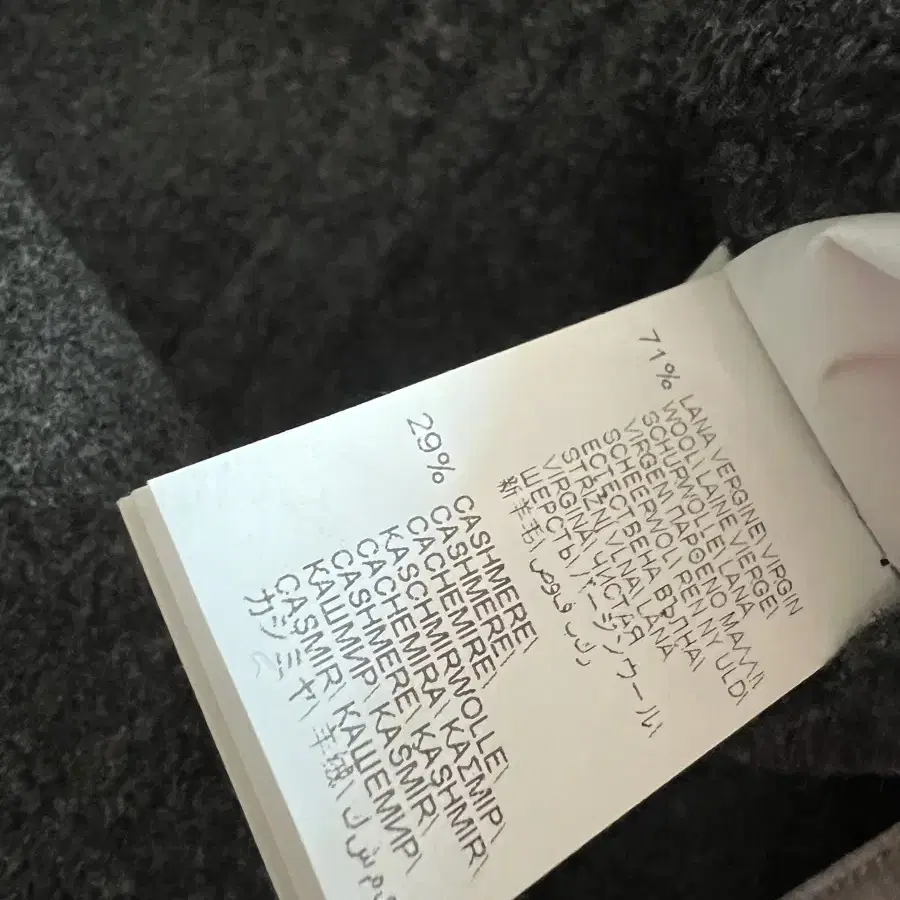 71%
LANA VERGINE\ VIRGIN
WOOL\ LAINE VIERGE\
SCHURWOLLE\ LANA
VIRGEM\ ΠΑΡΘΕΝΟ ΜΑΛΛΙ\
SCHEERWOL\ REN NY ULD\
ЕСТЕСТВЕНА ВРЛНА\
STRIŽNÍ VLNA\ LÂNĂ
VIRGINĂ\ ЧИСТАЯ
ШЕРСТЬ\ バージンウール\
新羊毛\
29%
CASHMERE\
CASHMERE\
CACHEMIRE\
KASCHMIRWOLLE\
CACHEMIRA\ ΚΑΣΜΙΡ\
CASHMERE\ KASHMIR\
КАШМИР\ KAŠMÍR\
CAŞMIR\ КАШЕМИР\
カシミヤ\ 羊绒\